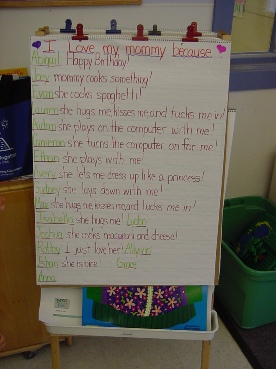 I Love my mommy because
Abigail Happy Birthday!
Joey mommy cooks something!
Evan she cooks spaghetti!
Lauren she hugs me, kisses me, and tucks me in!
she plays on the computer with me!
Cameron she turns the computer on for me!
Ethan she plays with me!
Avery she lets me dress up like a princess!
Sydney she lays down with me!
Max she hugs me, kisses me, and tucks me in!
Isabella she hugs me!
Joshua she cooks macaroni and cheese!
Bobby I just love her!
she is nice! Grace
Anna